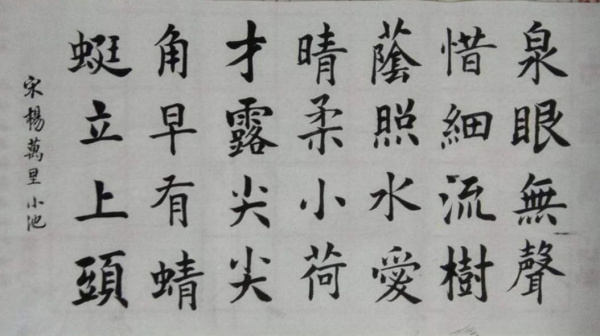 泉眼無聲
惜細流樹
蔭照水愛
晴柔小荷
才露尖尖
角早有蜻
蜓立上頭
宋楊萬里小池